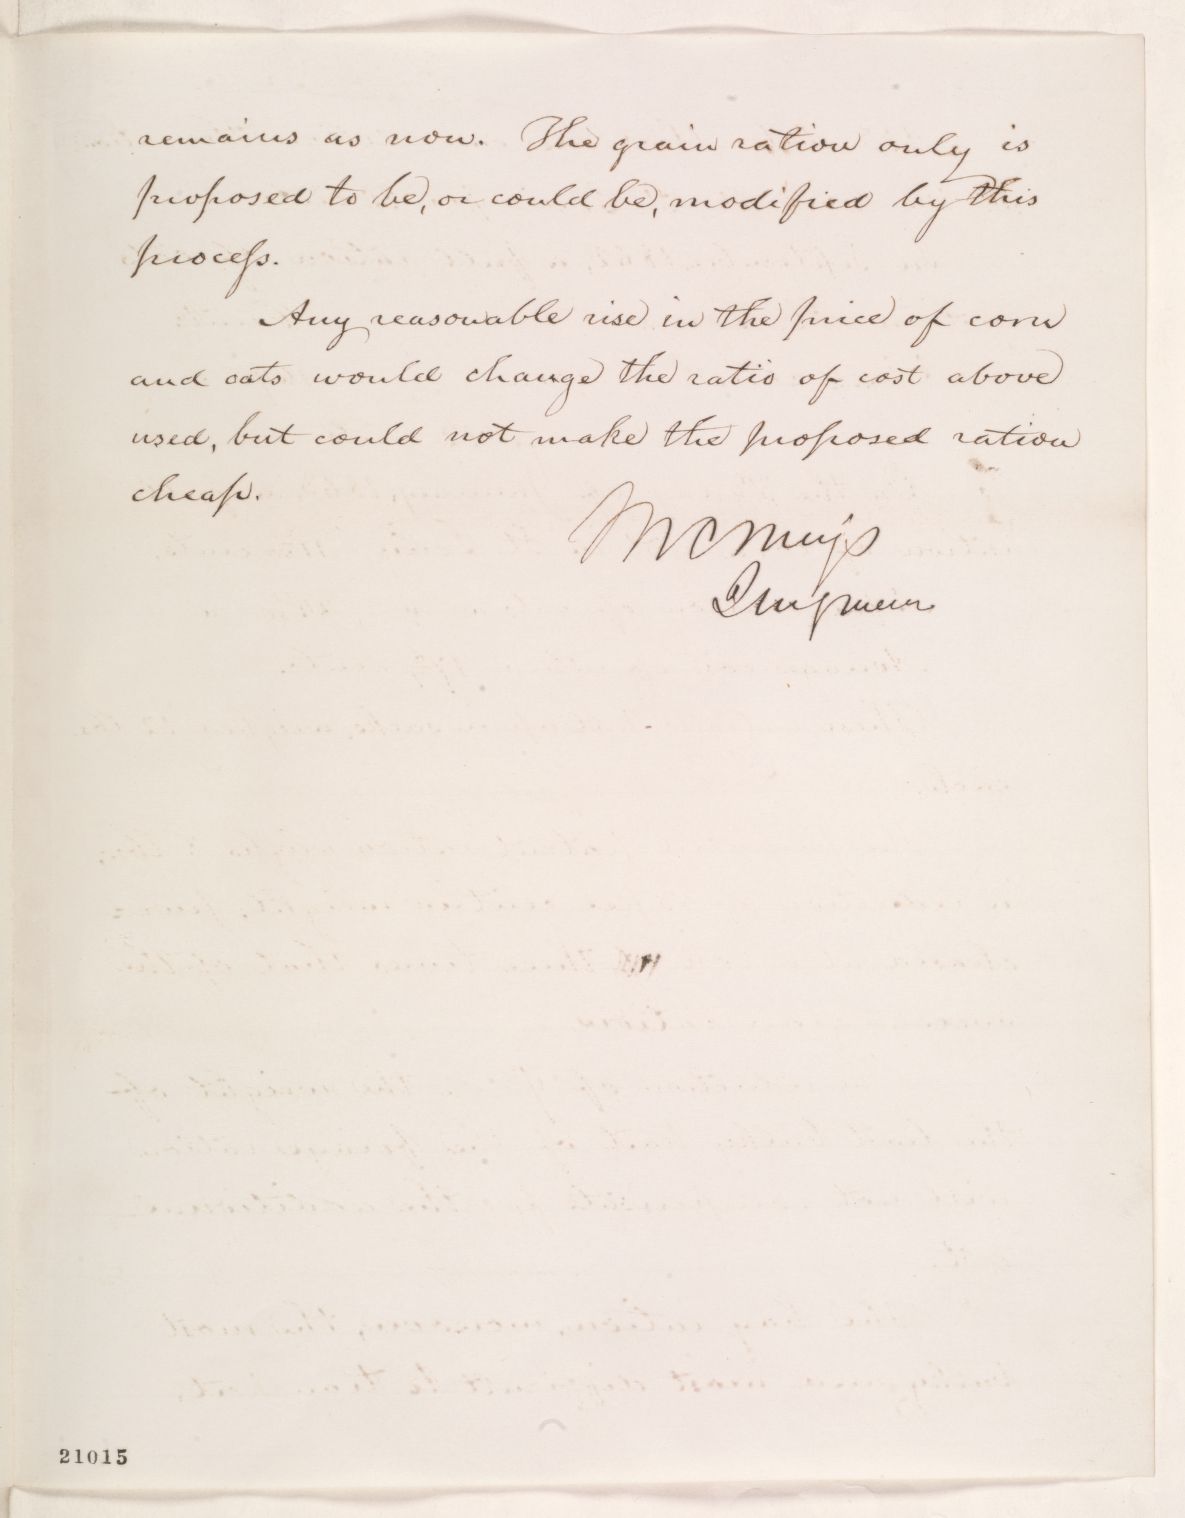 remains as now. The grain ration only is
proposed to be, or could be, modified by this
process.
Any reasonable rise in the price of corn
and oats would change the ratio of cost above
used, but could not make the proposed ration
cheap.
M C Meigs
21015